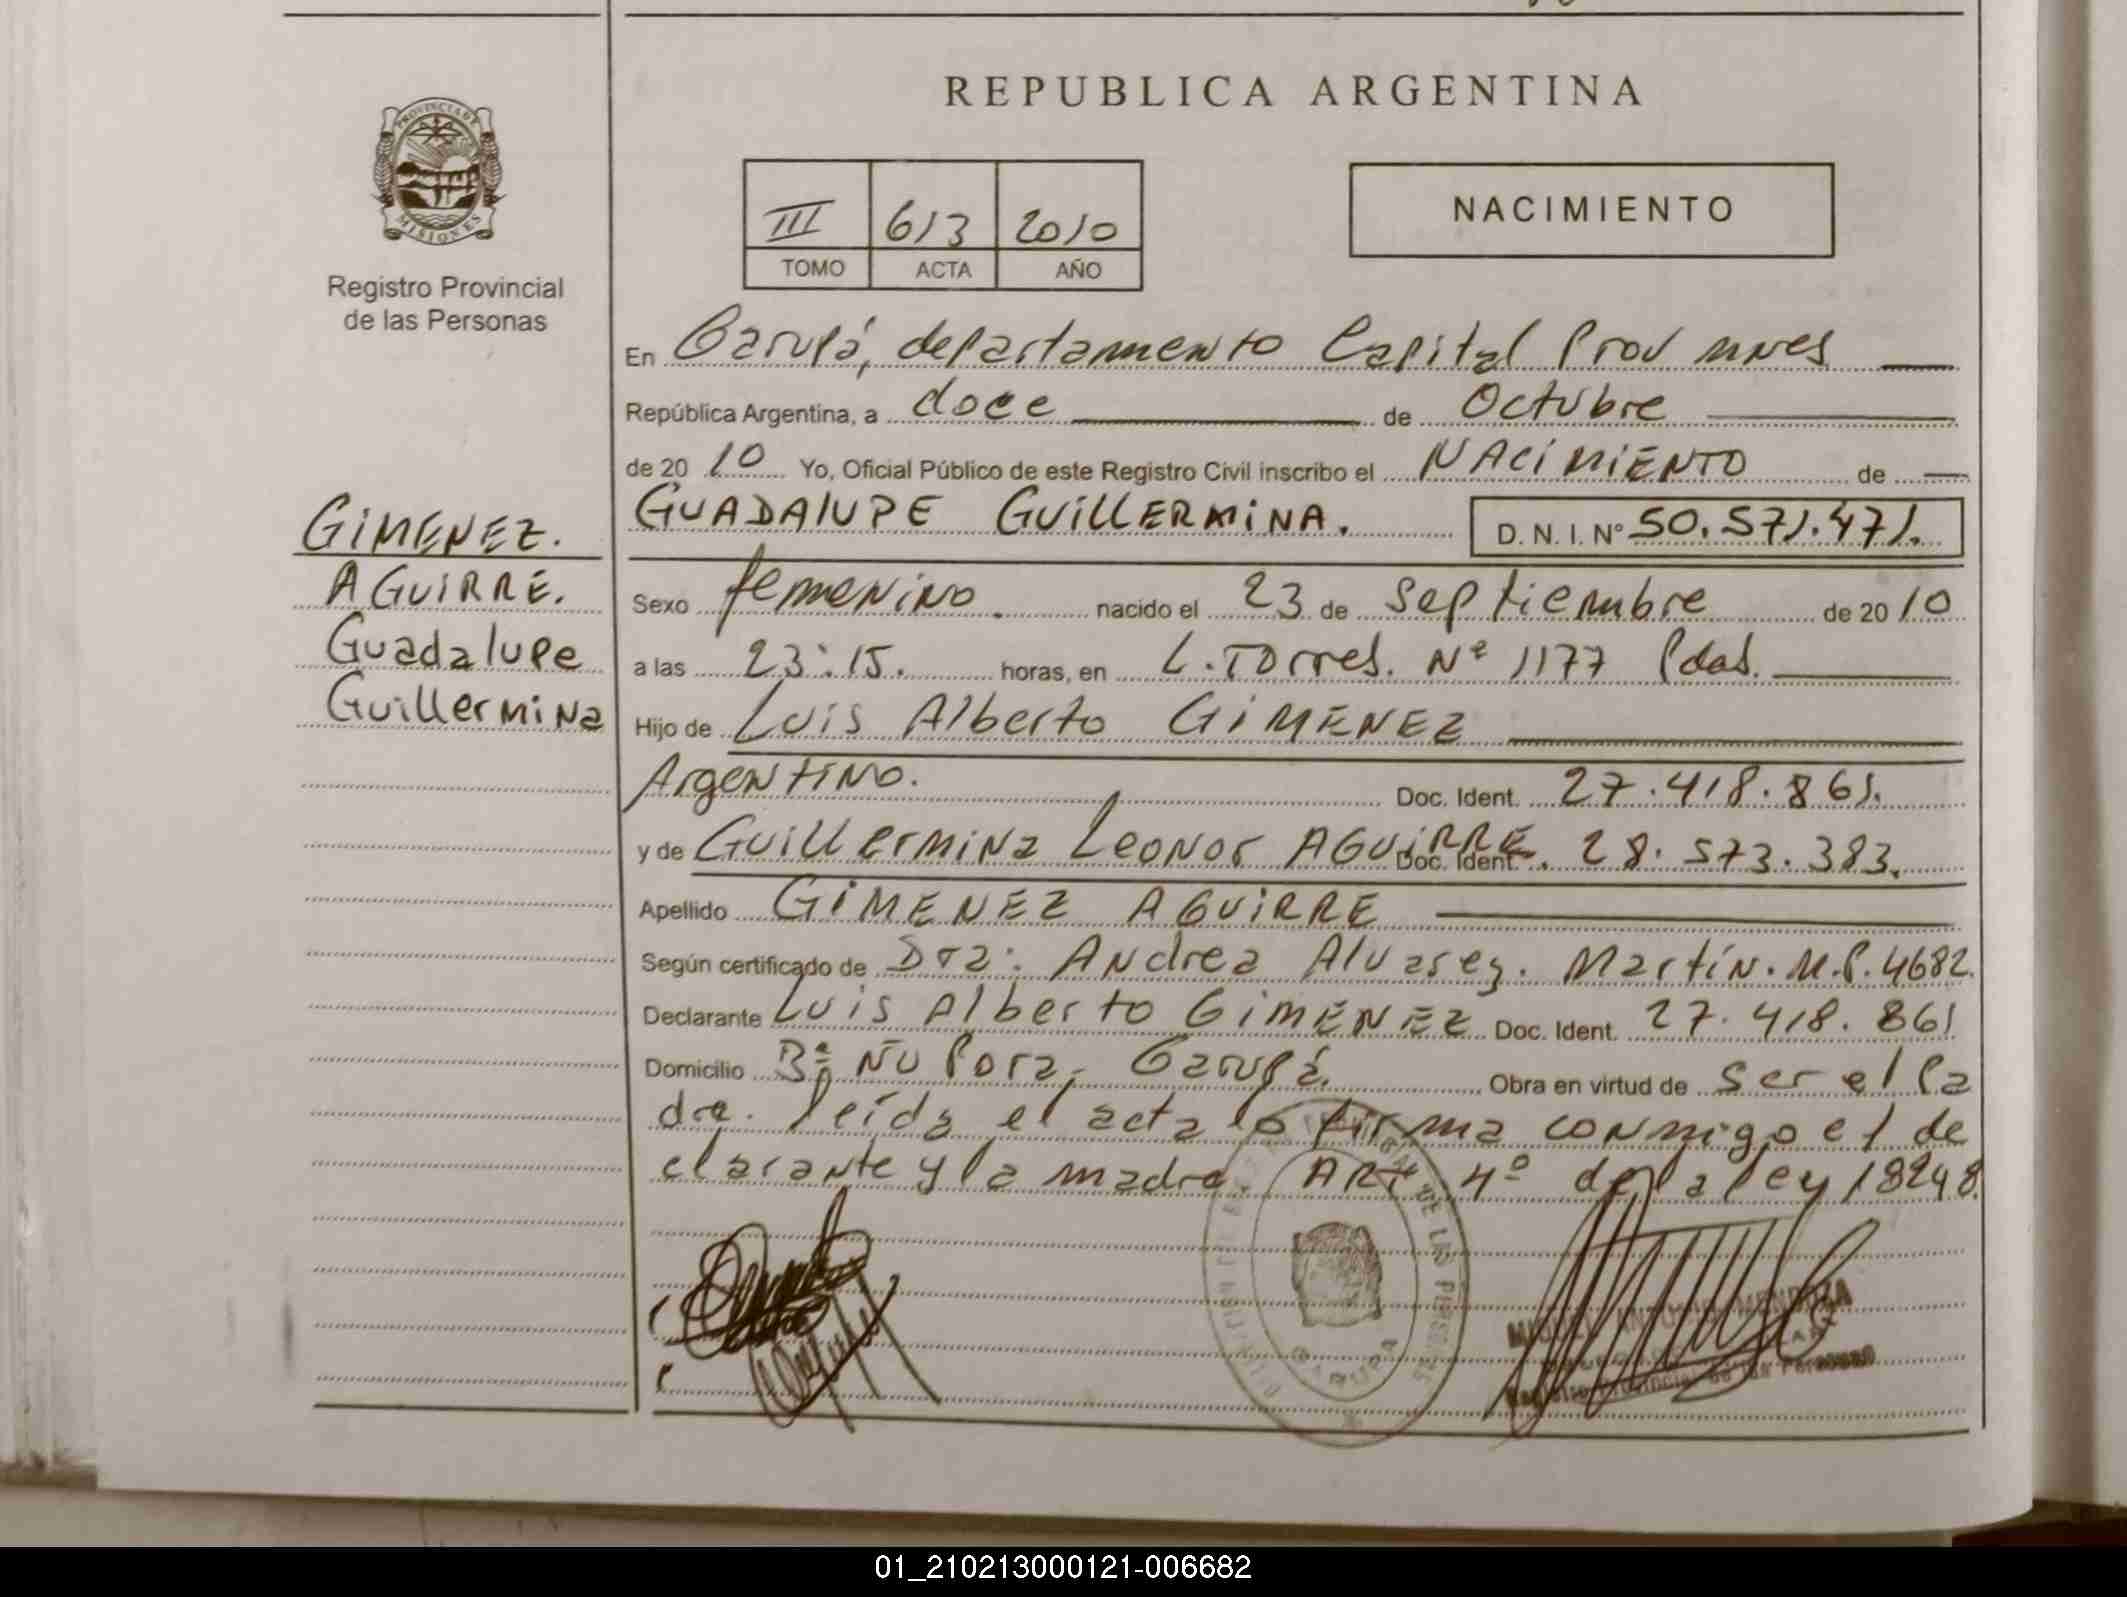 REPUBLICA ARGENTINA
PROVINCIA DE
MISIONES
Registro Provincial
de las Personas
III 613 2010
TOMO ACTA AÑO
NACIMIENTO
En Garupá, departamento Capital Prov mnes
República Argentina, a doce de Octubre
de 2010 Yo, Oficial Público de este Registro Civil inscribo el NACIMIENTO de
GIMENEZ.
AGUIRRE.
Guadalupe
Guillermina
GUADALUPE GUILLERMINA. D. N. I. Nº 50.571.471.
Sexo femenino. nacido el 23 de septiembre de 2010
a las 23:15. horas, en L. Torres. Nº 1177 Pdas.
Hijo de Luis Alberto GIMENEZ
Argentino. Doc. Ident. 27.418.861.
y de Guillermina Leonor AGUIRRE. Doc. Ident. 28.573.383.
Apellido GIMENEZ AGUIRRE
Según certificado de Dra: Andrea Alvarez. Martín. M.P. 4682.
Declarante Luis Alberto GIMENEZ Doc. Ident. 27.418.861
Domicilio Bº Ñu Pora, Garupá. Obra en virtud de ser el pa
dre. leída el acta la firma conmigo el de
clarante y la madre. ART 4º de la ley 18248.
DE LAS PERSONAS
GARUPA
MIGUEL ANTONIO MENDOZA
Registro Provincial de las Personas
01_210213000121-006682